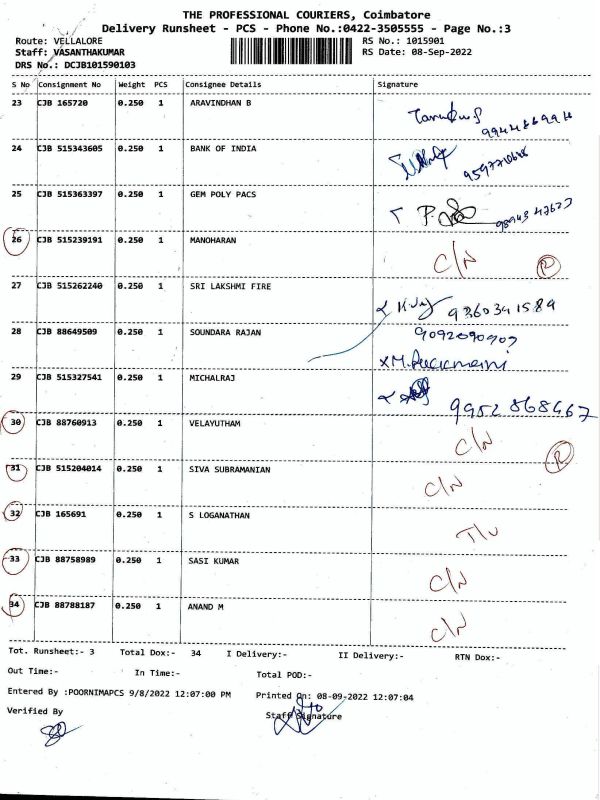 THE PROFESSIONAL COURIERS, Coimbatore
Delivery Runsheet - PCS - Phone No.:0422-3505555 - Page No.:3
Route: VELLALORE RS No.: 1015901
Staff: VASANTHAKUMAR RS Date: 08-Sep-2022
DRS No.: DCJB101590103
S No Consignment No Weight PCS Consignee Details Signature
23 CJB 165720 0.250 1 ARAVINDHAN B
24 CJB 515343605 0.250 1 BANK OF INDIA
25 CJB 515363397 0.250 1 GEM POLY PACS
26 CJB 515239191 0.250 1 MANOHARAN C/N R
27 CJB 515262240 0.250 1 SRI LAKSHMI FIRE
9360341589
28 CJB 88649509 0.250 1 SOUNDARA RAJAN
29 CJB 515327541 0.250 1 MICHALRAJ
9952868467
30 CJB 88760913 0.250 1 VELAYUTHAM C/N R
31 CJB 515204014 0.250 1 SIVA SUBRAMANIAN C/N
32 CJB 165691 0.250 1 S LOGANATHAN
33 CJB 88758989 0.250 1 SASI KUMAR C/N
34 CJB 88788187 0.250 1 ANAND M C/N
Tot. Runsheet:- 3 Total Dox:- 34 I Delivery:- II Delivery:- RTN Dox:-
Out Time:- In Time:- Total POD:-
Entered By :POORNIMAPCS 9/8/2022 12:07:00 PM Printed On: 08-09-2022 12:07:04
Verified By Staff Signature